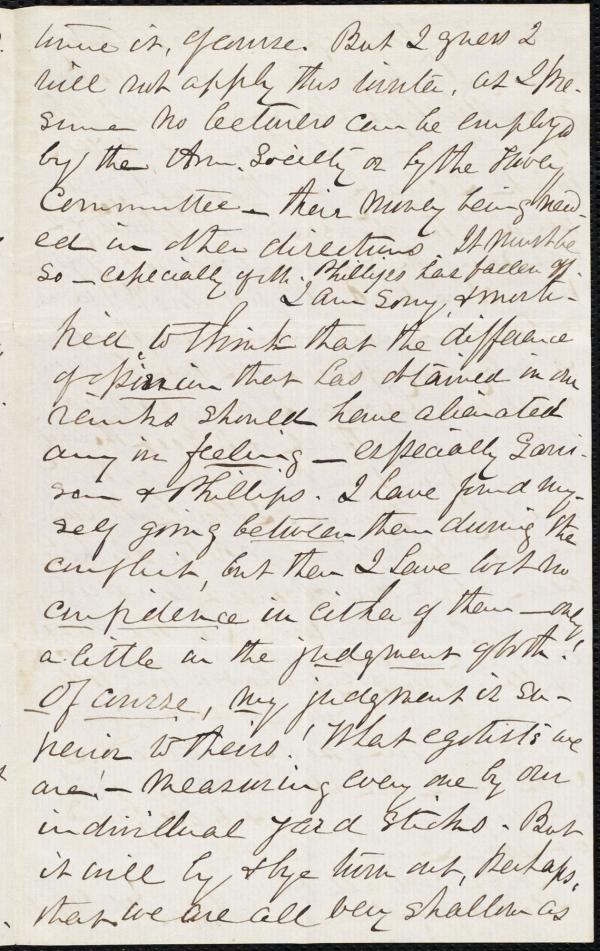 it, of course. But I guess I
will not apply this winter, as I pre-
sume no lecturers can be employ'd
by the Am. Society or by the Hovey
Committee — their money being need-
ed in other directions. It must be
so — especially if Mr. Phillips has fallen off.
I am sorry & morti-
fied to think that the difference
of opinion that has obtained in our
ranks should have alienated
any in feeling — especially Garri-
son & Phillips. I have found my-
self going between them during the
conflict, but then I have lost no
confidence in either of them — only
a little in the judgment of both!
Of course, my judgment is su-
perior to theirs! What egotists we
are! — measuring every one by our
individual yard sticks. But
it will by & bye turn out, perhaps,
that we are all very shallow as